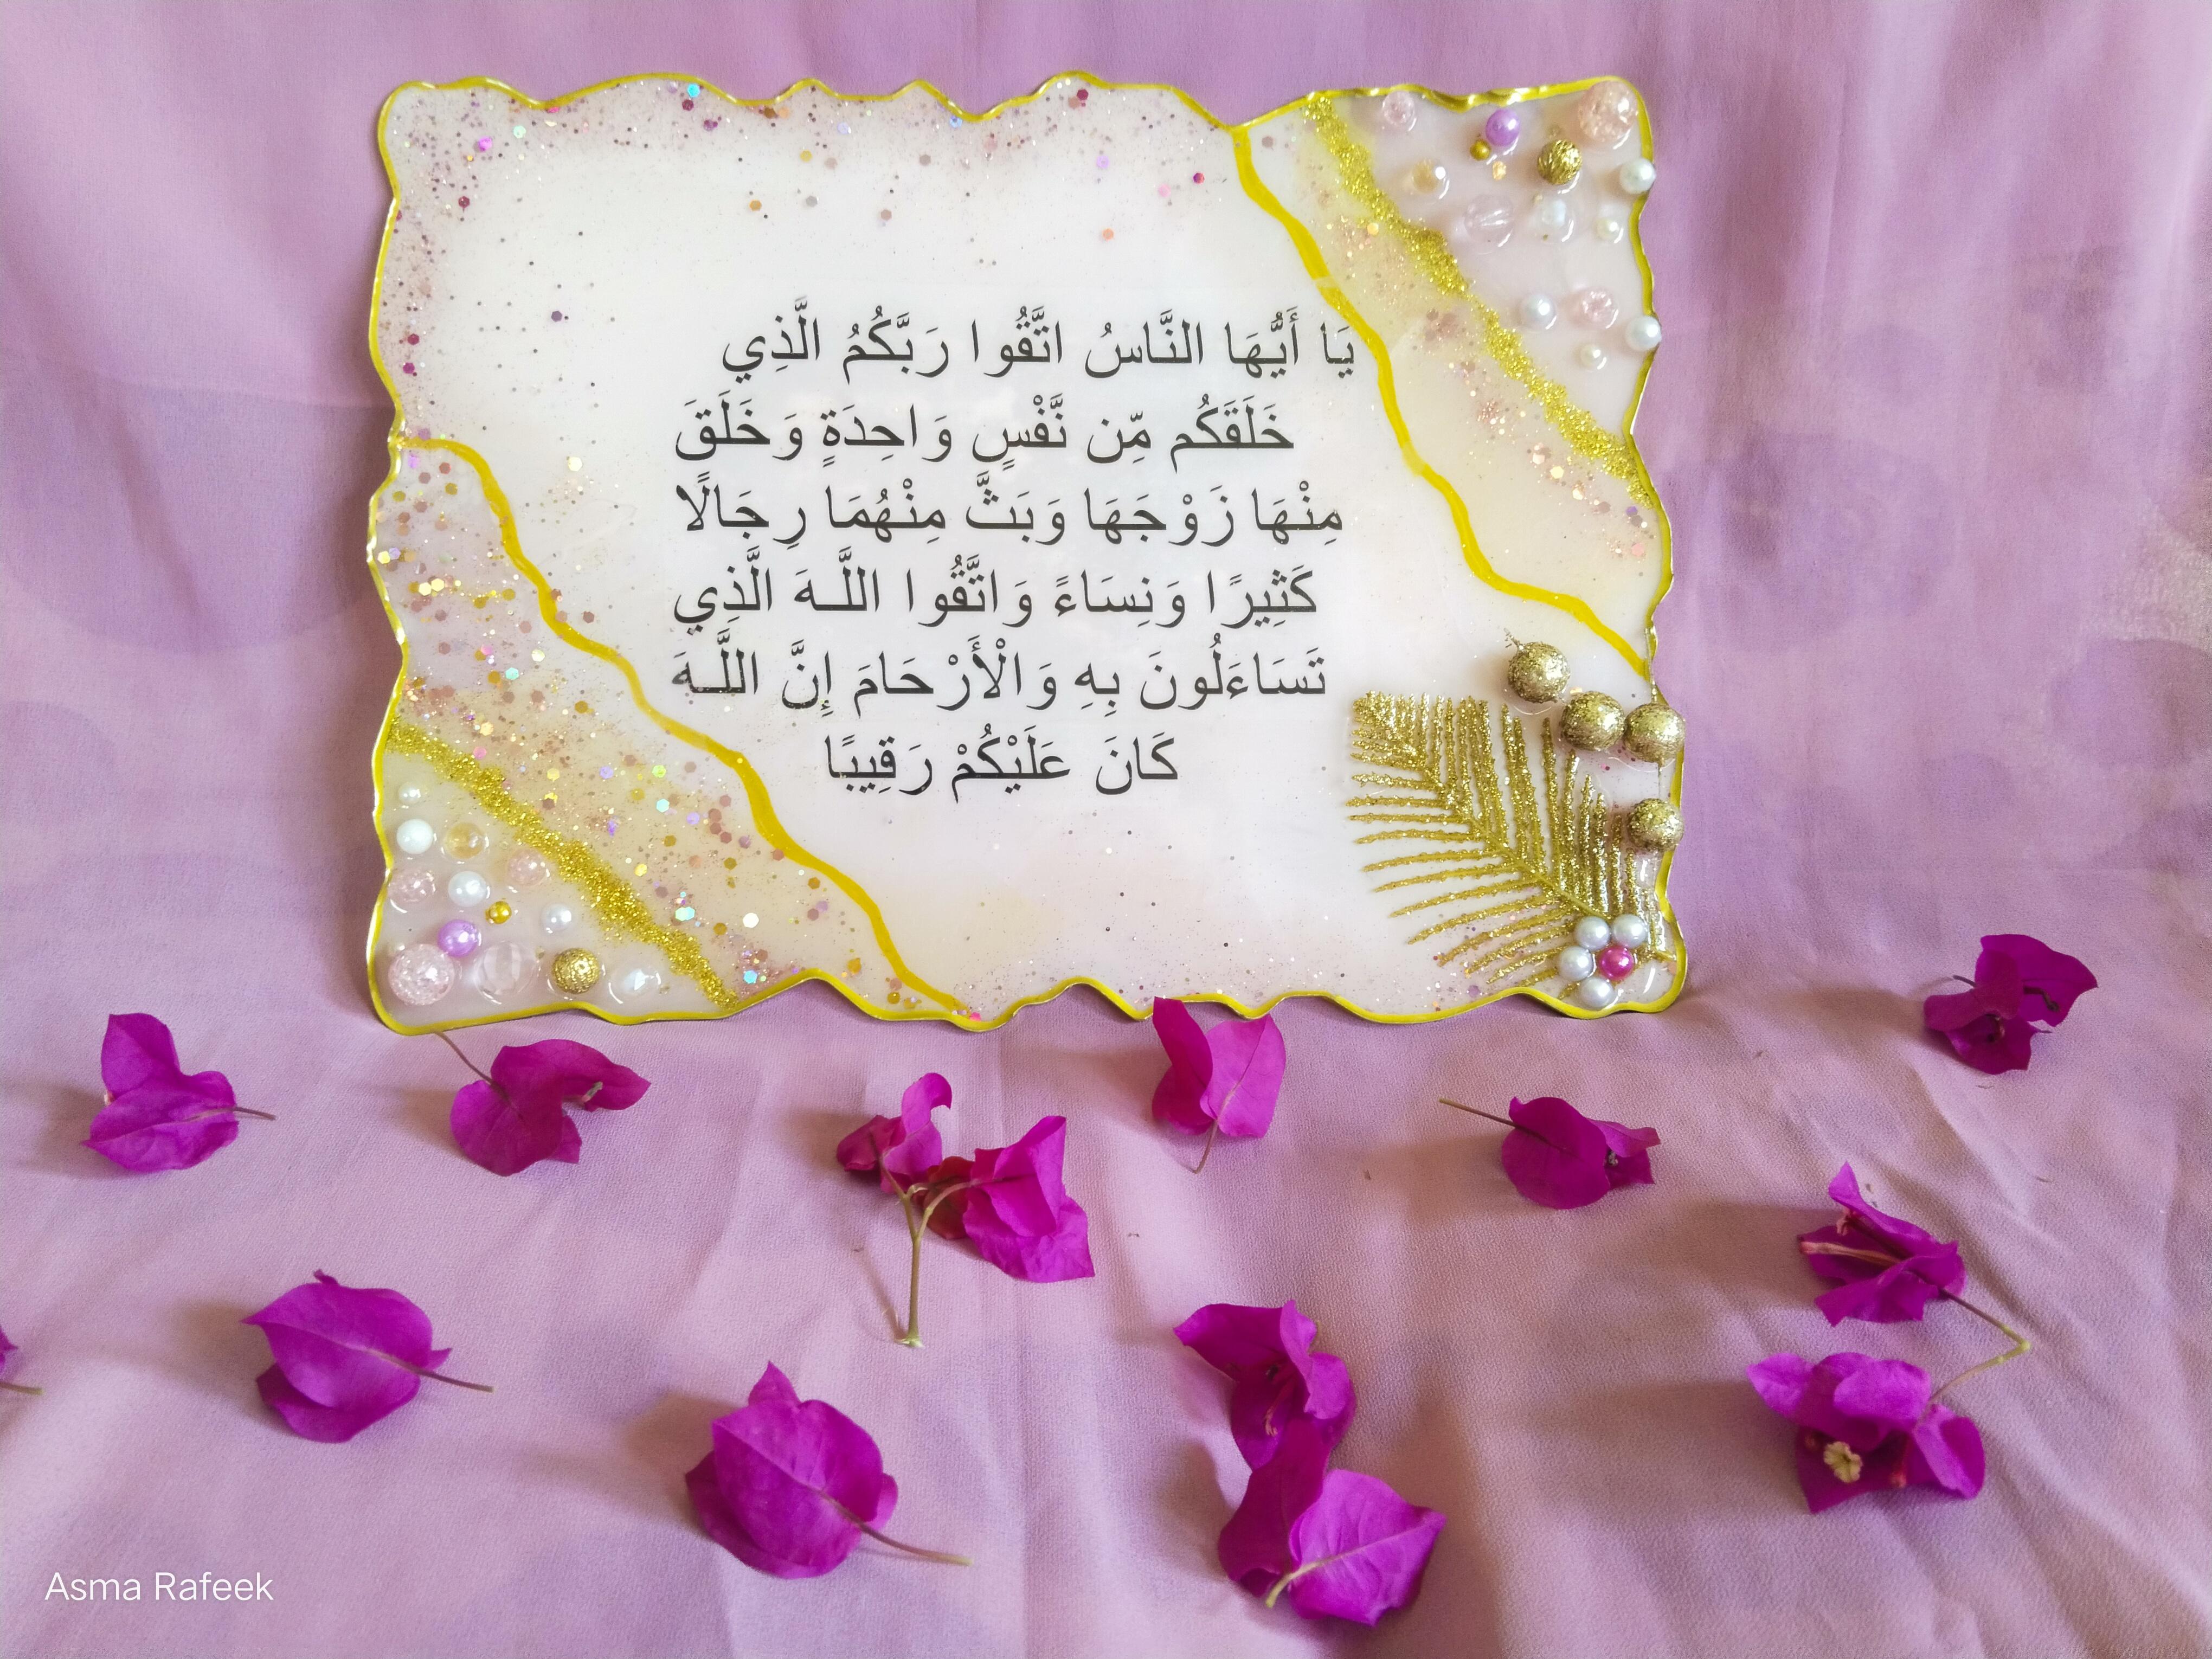 يَا أَيُّهَا النَّاسُ اتَّقُوا رَبَّكُمُ الَّذِي
خَلَقَكُم مِّن نَّفْسٍ وَاحِدَةٍ وَخَلَقَ
مِنْهَا زَوْجَهَا وَبَثَّ مِنْهُمَا رِجَالًا
كَثِيرًا وَنِسَاءً وَاتَّقُوا اللَّـهَ الَّذِي
تَسَاءَلُونَ بِهِ وَالْأَرْحَامَ إِنَّ اللَّـهَ
كَانَ عَلَيْكُمْ رَقِيبًا
Asma Rafeek